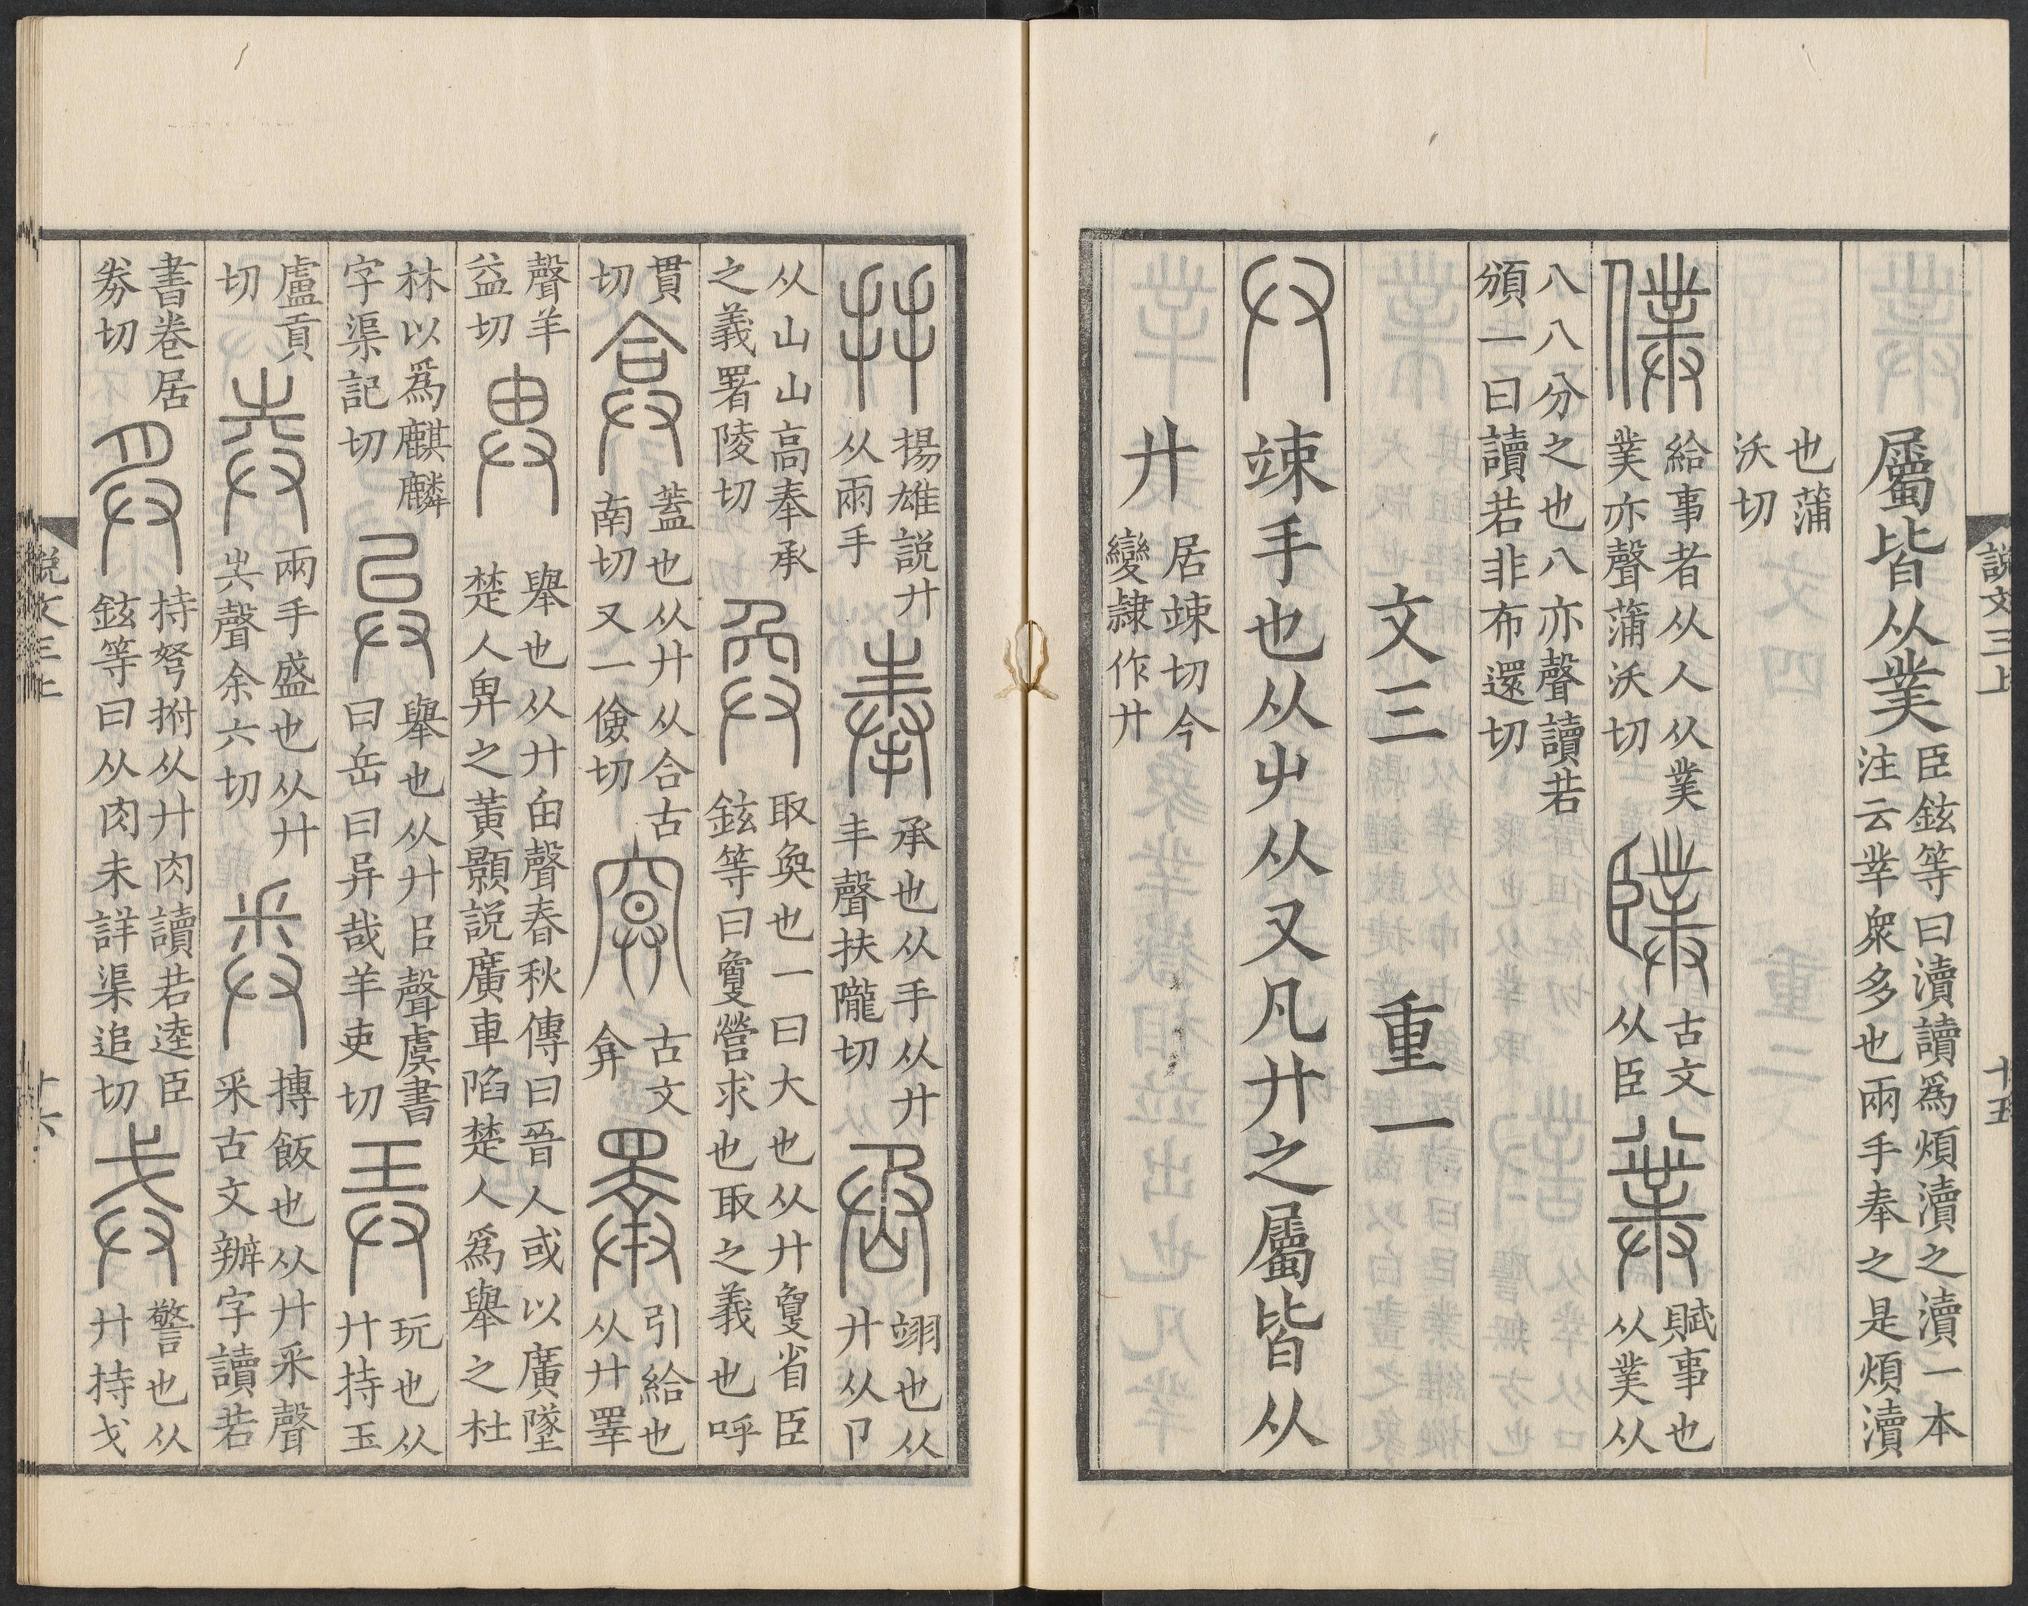 說文三上 十五
屬皆从菐臣鉉等曰瀆讀爲煩瀆之瀆一本注云丵衆多也兩手奉之是煩瀆
也蒲沃切
僕給事者从人从菐菐亦聲蒲沃切𦡱古文从臣𤰈賦事也从菐从
八八分之也八亦聲讀若頒一曰讀若非布還切
文三 重一
𠬞竦手也从屮从又凡廾之屬皆从
廾居竦切今變隸作廾
𢪒揚雄說廾从兩手奉承也从手从廾丰聲扶隴切丞翊也从廾从卩
从山山高奉承之義署陵切奐取奐也一曰大也从廾敻省臣鉉等曰敻營求也取之義也呼
貫切弇蓋也从廾从合古南切又一儉切𠔷古文弇𢍰引給也从廾睪
聲羊益切𢌿舉也从廾甶聲春秋傳曰晉人或以廣墜楚人𢌿之黃顥說廣車陷楚人爲舉之杜
林以爲麒麟字渠記切异舉也从廾㠯聲虞書曰岳曰异哉羊吏切弄玩也从廾持玉
盧貢切𢌵兩手盛也从廾𡴆聲余六切𢍏摶飯也从廾釆聲釆古文辦字讀若
書卷居劵切𢍁持弩拊从廾肉讀若逵臣鉉等曰从肉未詳渠追切戒警也从廾持戈
說文三上 十六